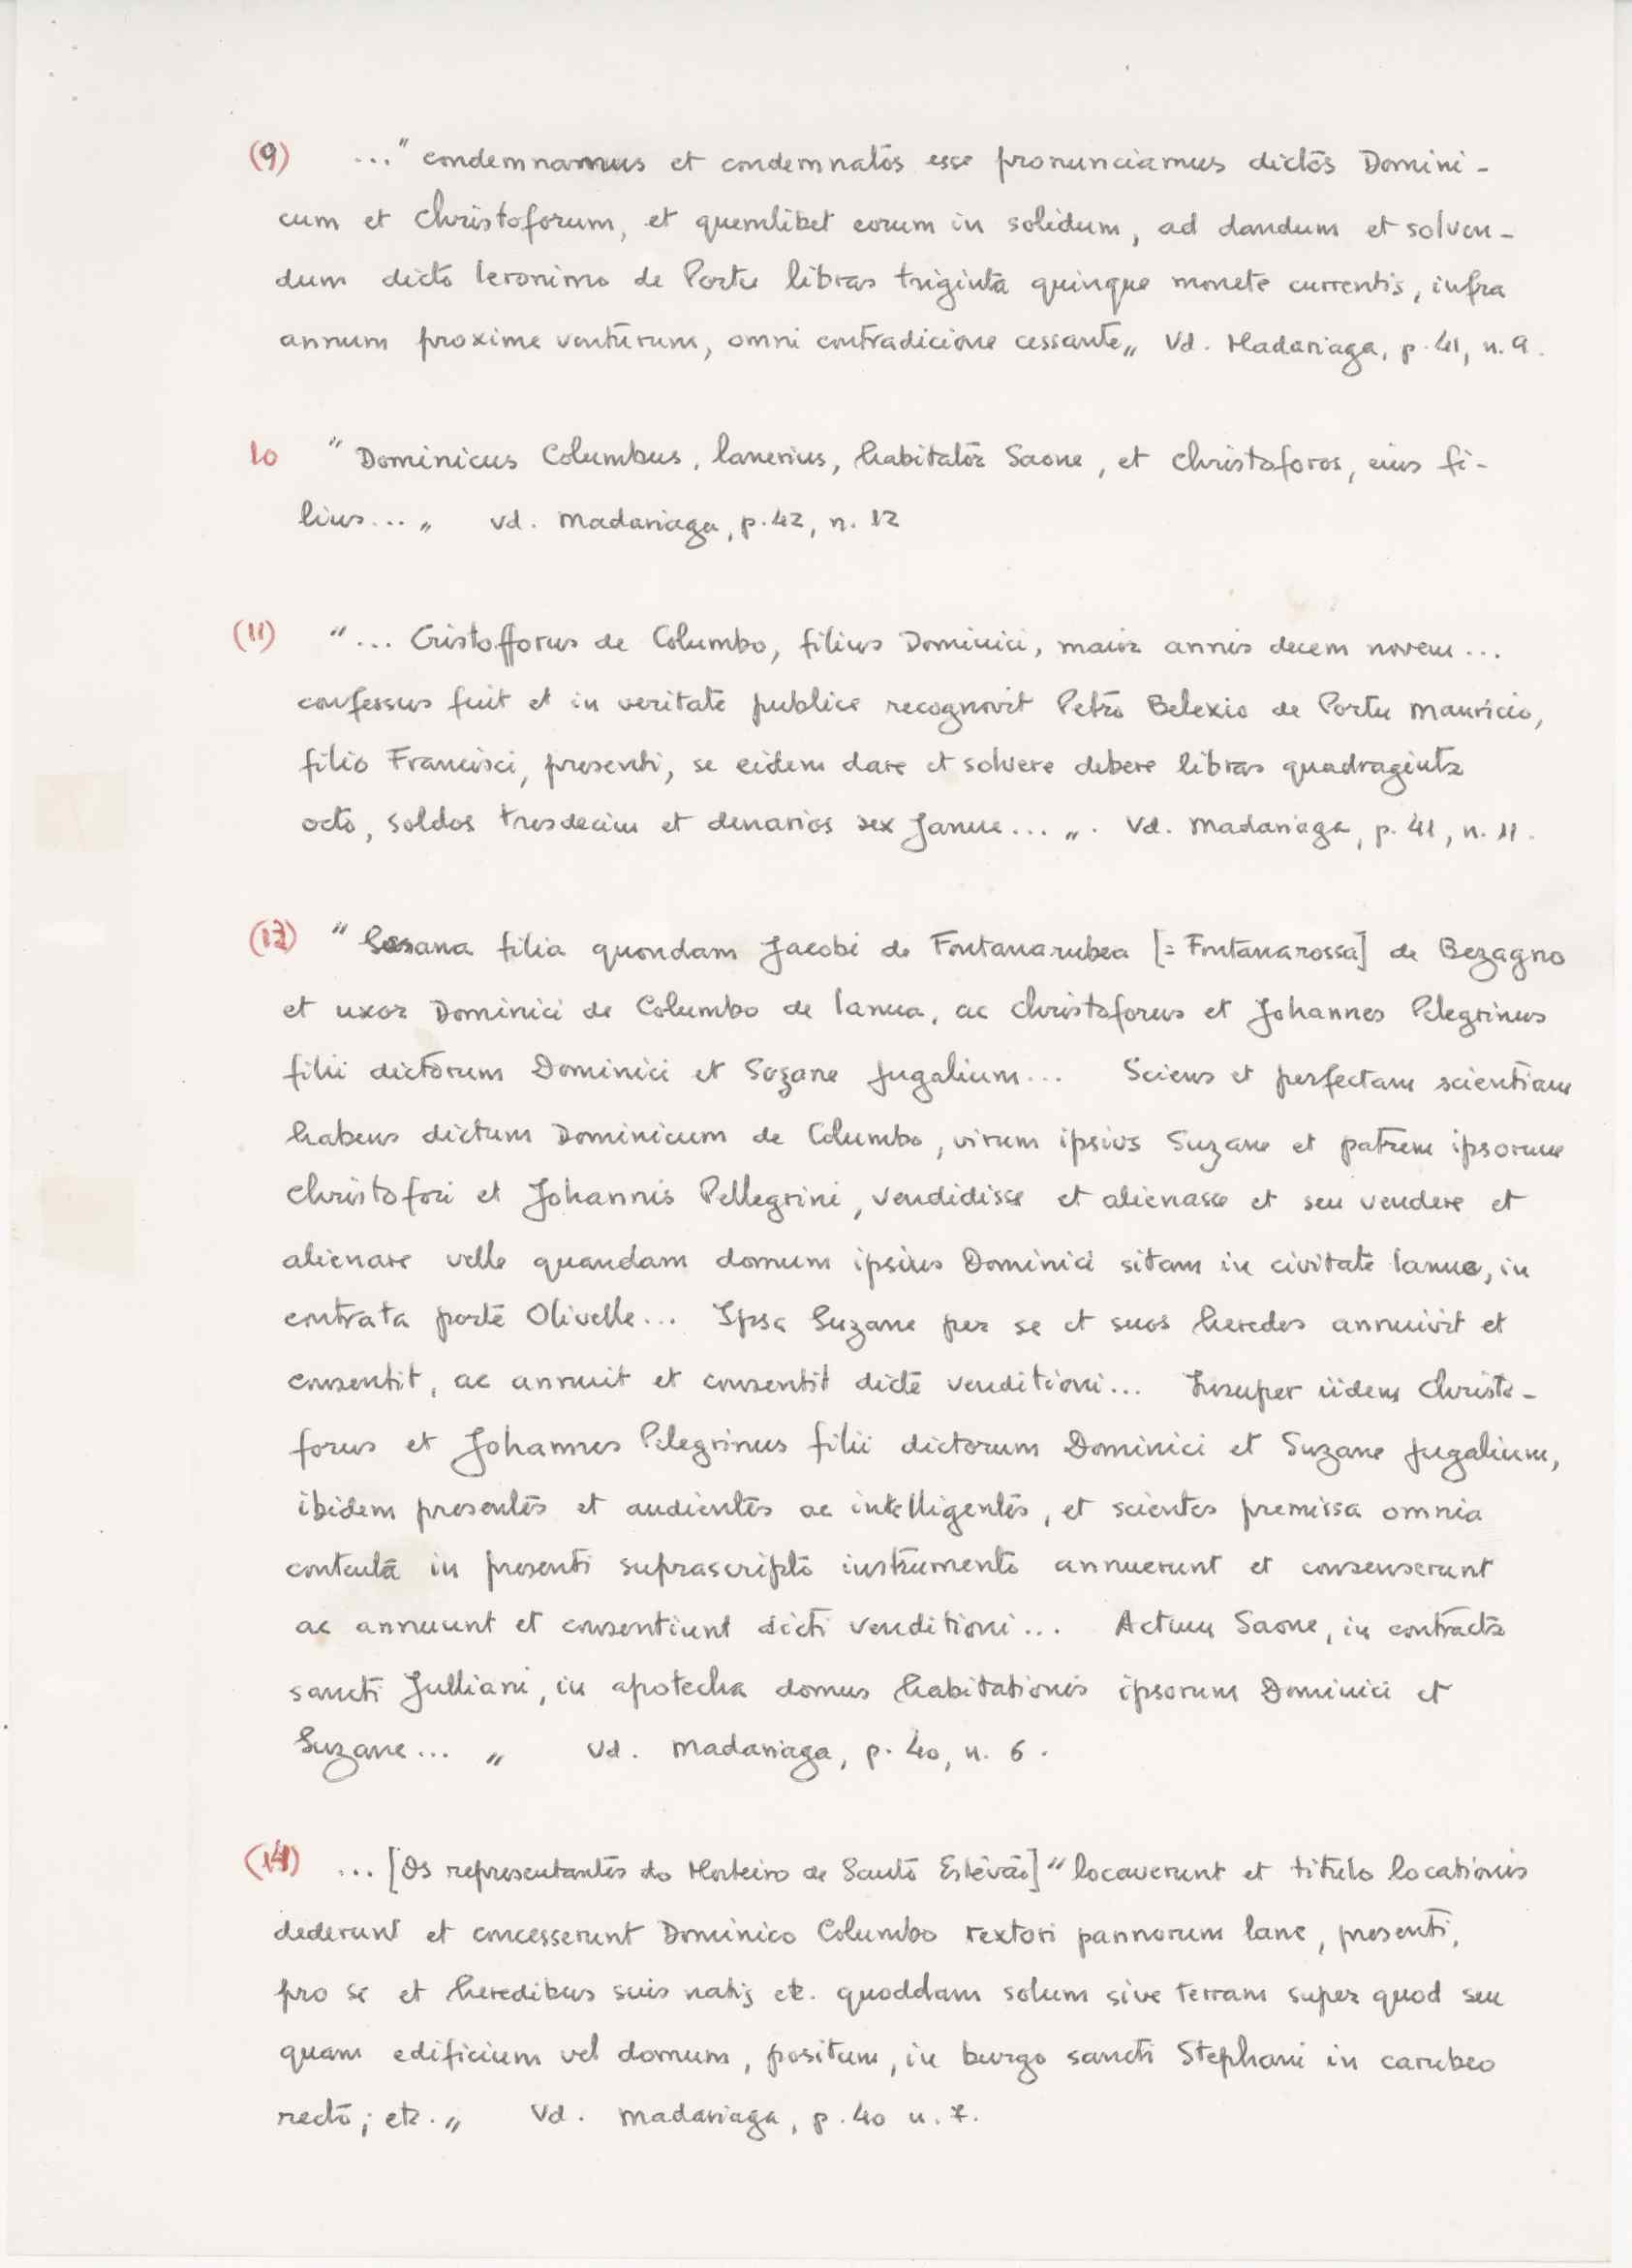 (9) ..." condemnamus et condemnatos esse pronunciamus dictos Domini-
cum et Christoforum, et quemlibet eorum in solidum, ad dandum et solven-
dum dicto Ieronimo de Portu libras triginta quinque monete currentis, infra
annum proxime venturum, omni contradicione cessante„ Vd. Madariaga, p. 41, n. 9.
10 " Dominicus Columbus, lanerius, habitator Saone, et Christoforos, eius fi-
lius... „ vd. Madariaga, p. 42, n. 12
(11) "... Cristofforus de Columbo, filius Dominici, maior annis decem novem...
confessus fuit et in veritate publice recognovit Petro Belexio de Portu Mauricio,
filio Francisci, presenti, se eidem dare et solvere debere libras quadraginta
octo, soldos tresdecim et denarios sex Janue... „. Vd. Madariaga, p. 41, n. 11.
(13) " Sosana filia quondam Jacobi de Fontanarubea [= Fontanarossa] de Bezagno
et uxor Dominici de Columbo de Ianua, ac Christoforus et Johannes Pelegrinus
filii dictorum Dominici et Sozane Jugalium... Sciens et perfectam scientiam
habens dictum Dominicum de Columbo, virum ipsius Suzane et patrem ipsorum
Christofori et Johannis Pellegrini, vendidisse et alienasse et seu vendere et
alienare velle quandam domum ipsius Dominici sitam in civitate Ianue, in
contrata porte Olivelle... Ipsa Suzane per se et suos heredes annuivit et
consentit, ac annuit et consentit dicte venditioni... Insuper iidem Christo-
forus et Johannes Pelegrinus filii dictorum Dominici et Suzane Jugalium,
ibidem presentes et audientes ac intelligentes, et scientes premissa omnia
contenta in presenti suprascripto instrumento annuerunt et consenserunt
ac annuunt et consentiunt dicti venditioni... Actum Saone, in contracta
sancti Julliani, in apotecha domus habitationis ipsorum Dominici et
Suzane... „ Vd. Madariaga, p. 40, n. 6.
(14) ... [Os representantes do Mosteiro de Santo Estêvão] " locaverunt et titulo locationis
dederunt et concesserunt Dominico Columbo textori pannorum lane, presenti,
pro se et heredibus suis natis etc. quoddam solum sive terram super quod seu
quam edificium vel domum, positum, in burgo sancti Stephani in carubeo
recto; etc. „ Vd. Madariaga, p. 40 n. 7.